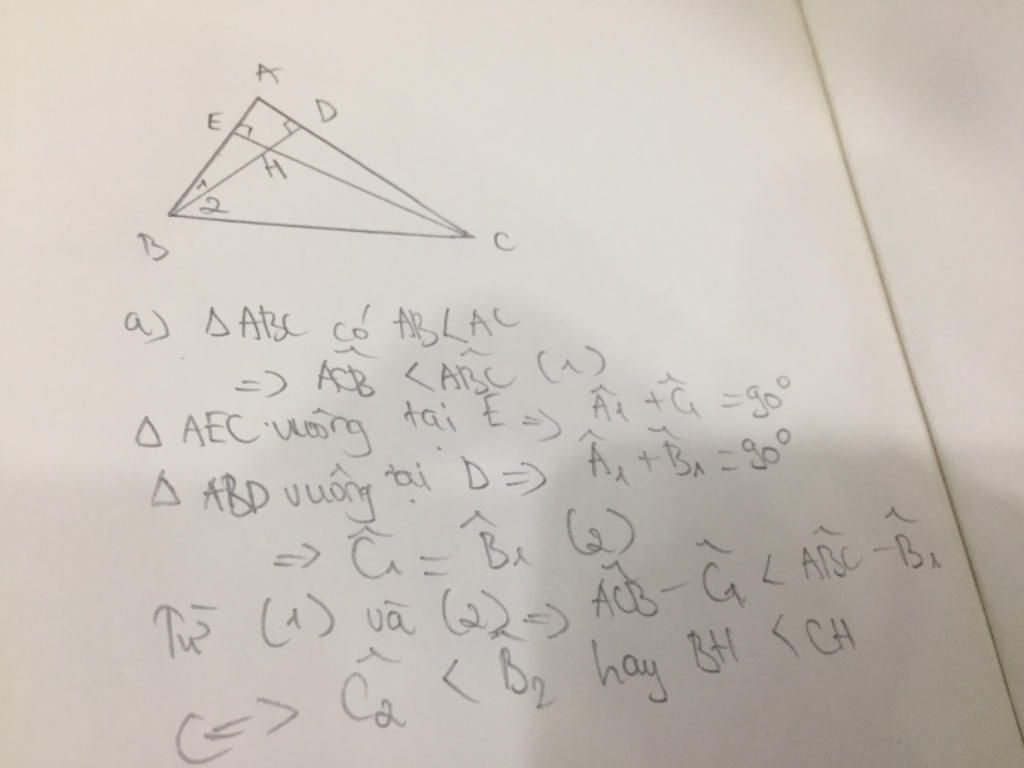 A
E D
H
1
2
B C
a) ΔABC có AB<AC
=> ACB^ < ABC^ (1)
Δ AEC vuông tại E => Â₁ + Ĉ₁ = 90°
Δ ABD vuông tại D => Â₁ + B̂₁ = 90°
=> Ĉ₁ = B̂₁ (2)
Từ (1) và (2) => ACB^ - Ĉ₁ < ABC^ - B̂₁
<=> Ĉ₂ < B̂₂ hay BH < CH